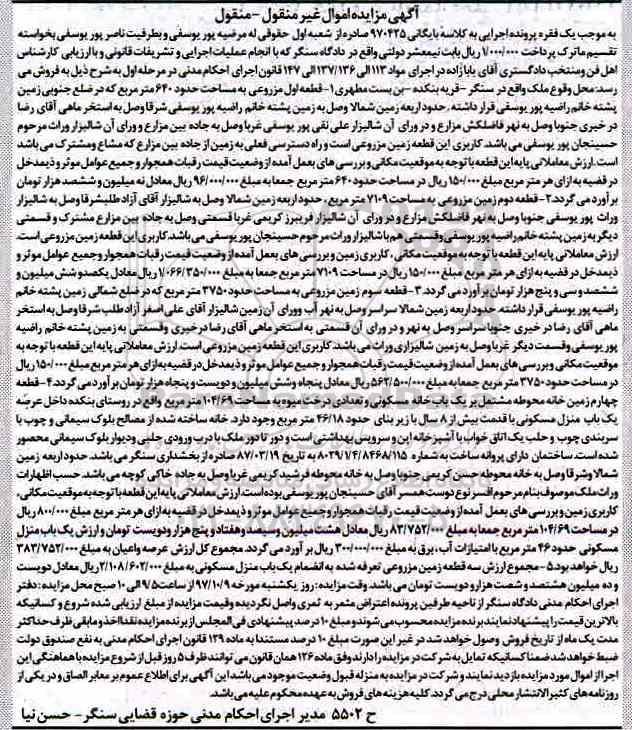 آگهی مزایده اموال غیر منقول - منقول
به موجب یک فقره پرونده اجرایی به کلاسه بایگانی ۹۷۰۴۳۵ صادره از شعبه اول حقوقی له مرضیه پور یوسفی و بطرفیت ناصر پور یوسفی بخواسته
تقسیم ماترک پرداخت ۱/۰۰۰/۰۰۰ ریال بابت نیمعشر دولتی واقع در دادگاه سنگر که با انجام عملیات اجرایی و تشریفات قانونی و با ارزیابی کارشناس
اهل فن و منتخب دادگستری آقای بابازاده در اجرای مواد ۱۱۳ الی ۱۳۷/۱۳۶ الی ۱۴۷ قانون اجرای احکام مدنی در مرحله اول به شرح ذیل به فروش می
رسد: محل وقوع ملک واقع در سنگر - قریه بنکده - بن بست مطهری ۱- قطعه اول مزروعی به مساحت حدود ۶۴۰ متر مربع که در ضلع جنوبی زمین
پشته خانم راضیه پور یوسفی قرار داشته. حدود اربعه زمین شمالا وصل به زمین پشته خانم راضیه پور یوسفی شرقا وصل به استخر ماهی آقای رضا
در خیری جنوبا وصل به نهر فاضلکش مزارع و در ورای آن شالیزار علی نقی پور یوسفی غربا وصل به جاده بین مزارع و ورای آن شالیزار وراث مرحوم
حسینجان پور یوسفی می باشد. کاربری این قطعه زمین مزروعی است و راه دسترسی فعلی به زمین از جاده بین مزارع که مشاع و مشترک می باشد
است. ارزش معاملاتی پایه این قطعه با توجه به موقعیت مکانی و بررسی های بعمل آمده از وضعیت قیمت رقبات همجوار و جمیع عوامل موثر و ذیمدخل
در قضیه به ازای هر متر مربع مبلغ ۱۵۰/۰۰۰ ریال در مساحت حدود ۶۴۰ متر مربع جمعا به مبلغ ۹۶/۰۰۰/۰۰۰ ریال معادل نه میلیون و ششصد هزار تومان
بر آورد می گردد. ۲- قطعه دوم زمین مزروعی به مساحت ۷۱۰۹ متر مربع، حدود اربعه زمین شمالا وصل به شالیزار آقای آزاد طلب شرقا وصل به شالیزار
وراث پور یوسفی جنوبا وصل به نهر فاضلکش مزارع و در ورای آن شالیزار فریبرز کریمی غربا قسمتی وصل به جاده بین مزارع مشترک و قسمتی
دیگر به زمین پشته خانم راضیه پور یوسفی و قسمتی هم با شالیزار وراث مرحوم حسینجان پور یوسفی می باشد. کاربری این قطعه زمین مزروعی است.
ارزش معاملاتی پایه این قطعه با توجه به موقعیت مکانی، کاربری زمین و بررسی های بعمل آمده از وضعیت قیمت رقبات همجوار و جمیع عوامل موثر و
ذیمدخل در قضیه به ازای هر متر مربع مبلغ ۱۵۰/۰۰۰ ریال در مساحت ۷۱۰۹ متر مربع جمعا به مبلغ ۱/۰۶۶/۳۵۰/۰۰۰ ریال معادل یکصد و شش میلیون و
ششصد و سی و پنج هزار تومان بر آورد می گردد. ۳- قطعه سوم زمین مزروعی به مساحت حدود ۳۷۵۰ متر مربع که در ضلع شمالی زمین پشته خانم
راضیه پور یوسفی قرار داشته. حدود اربعه زمین شمالا سراسر وصل به نهر آب و ورای آن زمین شالیزار آقای علی اصغر آزاد طلب شرقا وصل به استخر
ماهی آقای رضا در خیری جنوبا سراسر وصل به نهر و در ورای آن قسمتی به استخر ماهی آقای رضا در خیری و قسمتی به زمین پشته خانم راضیه
پور یوسفی و قسمت دیگر غربا وصل به زمین شالیزاری وراث می باشد. کاربری این قطعه زمین مزروعی است. ارزش معاملاتی پایه این قطعه با توجه به
موقعیت مکانی و بررسی های بعمل آمده از وضعیت قیمت رقبات همجوار و جمیع عوامل موثر و ذیمدخل در قضیه به ازای هر متر مربع مبلغ ۱۵۰/۰۰۰ ریال
در مساحت حدود ۳۷۵۰ متر مربع جمعا به مبلغ ۵۶۲/۵۰۰/۰۰۰ ریال معادل پنجاه وشش میلیون و دویست و پنجاه هزار تومان بر آورد می گردد. ۴- قطعه
چهارم زمین خانه محوطه مشتمل بر یک باب خانه مسکونی و تعدادی درخت میوه به مساحت ۱۰۴/۶۹ متر مربع واقع در روستای بنکده داخل عرصه
یک باب منزل مسکونی با قدمت بیش از ۸ سال با زیر بنای حدود ۴۶/۱۸ متر مربع وجود دارد. خانه ساخته شده از مصالح بلوک سیمانی و چوب با
سربندی چوب و حلب یک اتاق خواب با آشپزخانه اپن و سرویس بهداشتی است و دور تا دور ملک با درب ورودی جلبی و دیوار بلوک سیمانی محصور
شده است. ساختمان دارای پروانه ساخت به شماره ۸۰۲۹/۱/۴/۸۴۶۸/۱۱۵ به تاریخ ۸۷/۰۳/۱۹ صادره از بخشداری سنگر می باشد. حدود اربعه زمین
شمالا وشرقا وصل به خانه محوطه حسن کریمی جنوبا وصل به خانه محوطه فرشید کریمی غربا وصل به جاده خاکی کوچه می باشد. حسب اظهارات
وراث ملک موصوف بنام مرحوم افسر نوع دوست همسر آقای حسینجان پور یوسفی بوده است. ارزش معاملاتی پایه این قطعه با توجه به موقعیت مکانی،
کاربری زمین و بررسی های بعمل آمده از وضعیت قیمت رقبات همجوار و جمیع عوامل موثر و ذیمدخل در قضیه به ازای هر متر مربع مبلغ ۸۰۰/۰۰۰ ریال
در مساحت ۱۰۴/۶۹ متر مربع جمعا به مبلغ ۸۳/۷۵۲/۰۰۰ ریال معادل هشت میلیون و سیصد و هفتاد و پنج هزار و دویست تومان و ارزش یک باب منزل
مسکونی حدود ۴۶ متر مربع با امتیازات آب، برق به مبلغ ۳۰۰/۰۰۰/۰۰۰ ریال بر آورد می گردد. مجموع کل ارزش عرصه واعیان به مبلغ ۳۸۳/۷۵۲/۰۰۰
ریال خواهد بود. ۵- مجموع ارزش سه قطعه زمین مزروعی تعرفه شده به انضمام یک باب منزل مسکونی به مبلغ ۲/۱۰۸/۶۰۲/۰۰۰ ریال معادل دویست
و ده میلیون هشتصد و شصت هزار و دویست تومان می باشد. وقت مزایده: روز یکشنبه مورخه ۹۷/۱۰/۹ از ساعت ۹/۵ الی ۱۰ صبح محل مزایده: دفتر
اجرای احکام مدنی دادگاه سنگر از ناحیه طرفین پرونده اعتراض مثمر به ثمری واصل نگردیده و قیمت مزایده از مبلغ ارزیابی شده شروع و کسانیکه
بالاترین قیمت را پیشنهاد نمایند برنده مزایده محسوب می شوند و مبلغ ۱۰ درصد پیشنهادی فی المجلس از برنده مزایده نقدا اخذ و مابقی ظرف حداکثر
مدت یک ماه از تاریخ فروش وصول خواهد شد در غیر این صورت مبلغ ۱۰ درصد مستندا به ماده ۱۲۹ قانون اجرای احکام مدنی به نفع صندوق دولت
ضبط خواهد شد ضمنا کسانیکه تمایل به شرکت در مزایده را دارند وفق ماده ۱۲۶ همان قانون می توانند ظرف ۵ روز قبل از شروع مزایده با هماهنگی این
اجرا از اموال مورد مزایده بازدید نمایند و شرکت در مزایده به منزله قبول وضعیت موجود می باشد این آگهی برای اطلاع عموم بر معابر الصاق و در یکی از
روزنامه های کثیرالانتشار محلی درج می گردد. کلیه هزینه های فروش به عهده محکوم علیه می باشد.
ح ۵۵۰۲ مدیر اجرای احکام مدنی حوزه قضایی سنگر - حسن نیا